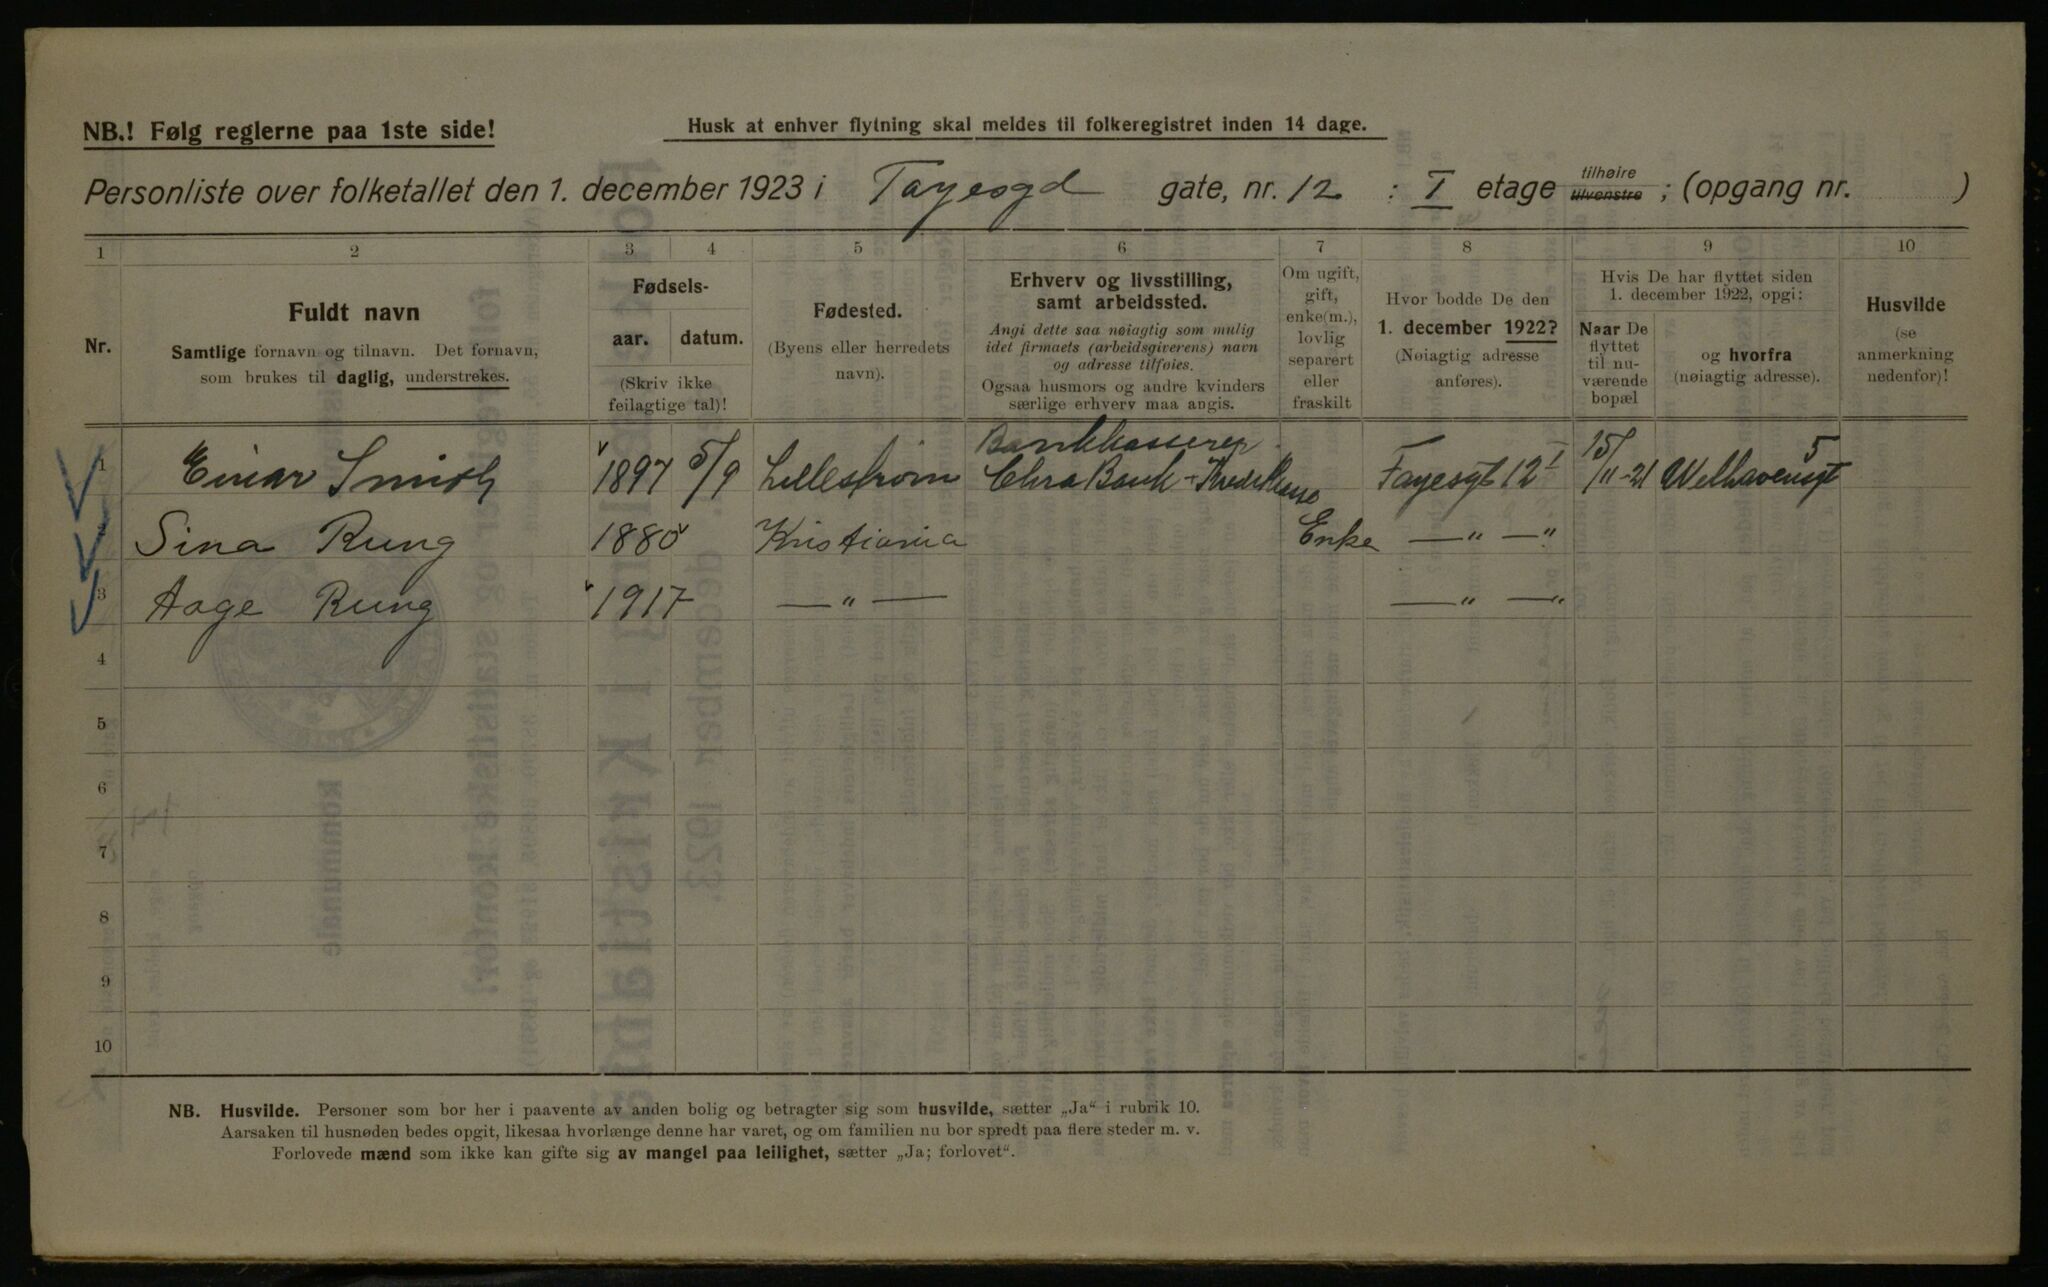 NB.! Følg reglerne paa 1ste side!
Husk at enhver flytning skal meldes til folkeregistret inden 14 dage.
Personliste over folketallet den 1. december 1923 i Fayesgd gate, nr. 12 : I etage tilhøire tilvenstre ; (opgang nr. )
1 2 3 4 5 6 7 8 9 10
Nr.
Fuldt navn
Samtlige fornavn og tilnavn. Det fornavn,
som brukes til daglig, understrekes.
Fødsels-
aar. datum.
(Skriv ikke
feilagtige tal)!
Fødested.
(Byens eller herredets
navn).
Erhverv og livsstilling,
samt arbeidssted.
Angi dette saa nøiagtig som mulig
idet firmaets (arbeidsgiverens) navn
og adresse tilføies.
Ogsaa husmors og andre kvinders
særlige erhverv maa angis.
Om ugift,
gift,
enke(m.),
lovlig
separert
eller
fraskilt
Hvor bodde De den
1. december 1922?
(Nøiagtig adresse
anføres).
Hvis De har flyttet siden
1. december 1922, opgi:
Naar De
flyttet
til nu-
værende
bopæl
og hvorfra
(nøiagtig adresse).
Husvilde
(se
anmerkning
nedenfor)!
1 Einar Smith 1897 5/9 Lillestrøm Bankkasserer Chra Bank - Kredikasse Fayesgt 12 I 15/11-21 Welhavensgt 5
2 Sina Rung 1880 Kristiania Enke — " — "
3 Aage Rung 1917 — " — — " — "
4
5
6
7
8
9
10
NB. Husvilde. Personer som bor her i paavente av anden bolig og betragter sig som husvilde, sætter „Ja“ i rubrik 10.
Aarsaken til husnøden bedes opgit, likesaa hvorlænge denne har varet, og om familien nu bor spredt paa flere steder m. v.
Forlovede mænd som ikke kan gifte sig av mangel paa leilighet, sætter „Ja; forlovet“.